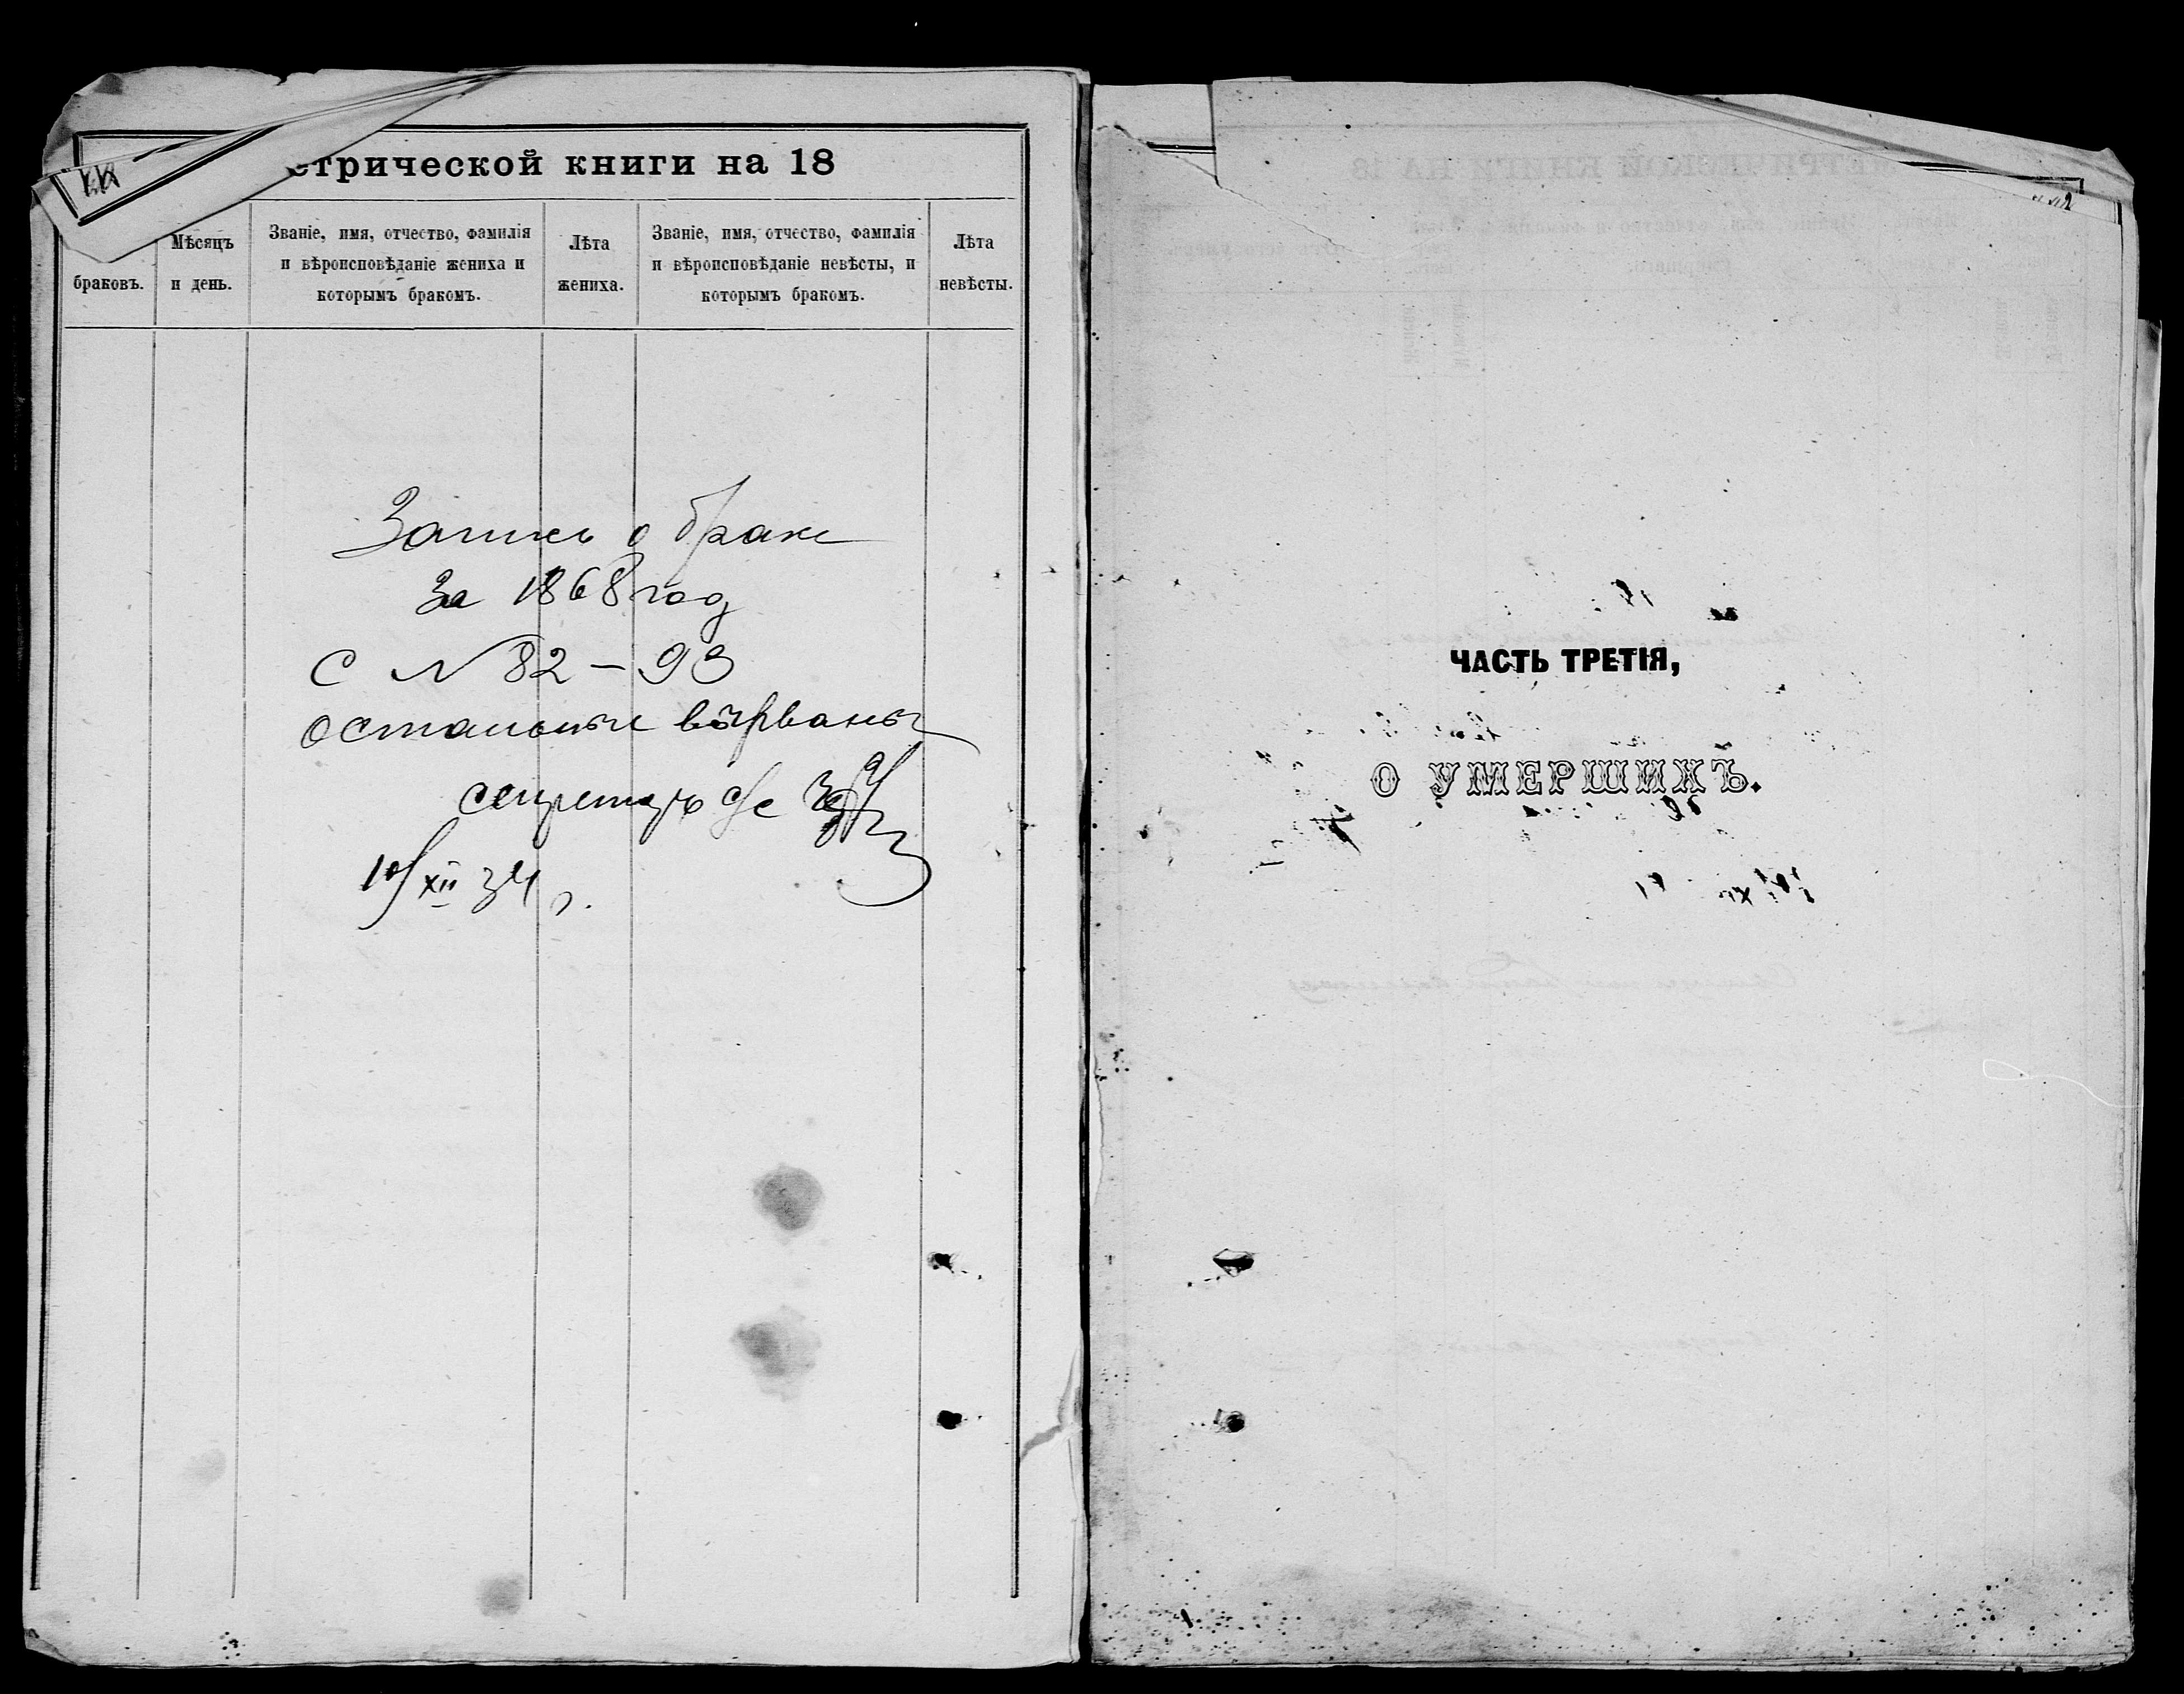 етрической книги на 18
браковъ.
Мѣсяцъ
и день.
Званіе, имя, отчество, фамилія
и вѣроисповѣданіе жениха и
которымъ бракомъ.
Лѣта
жениха.
Званіе, имя, отчество, фамилія
и вѣроисповѣданіе невѣсты, и
которымъ бракомъ.
Лѣта
невѣсты.
Запись о браке
За 1868 год
С № 82 – 93
остальные вырваны
секретарь с/с
10/XII 34 г.
ЧАСТЬ ТРЕТІЯ,
О УМЕРШИХЪ.